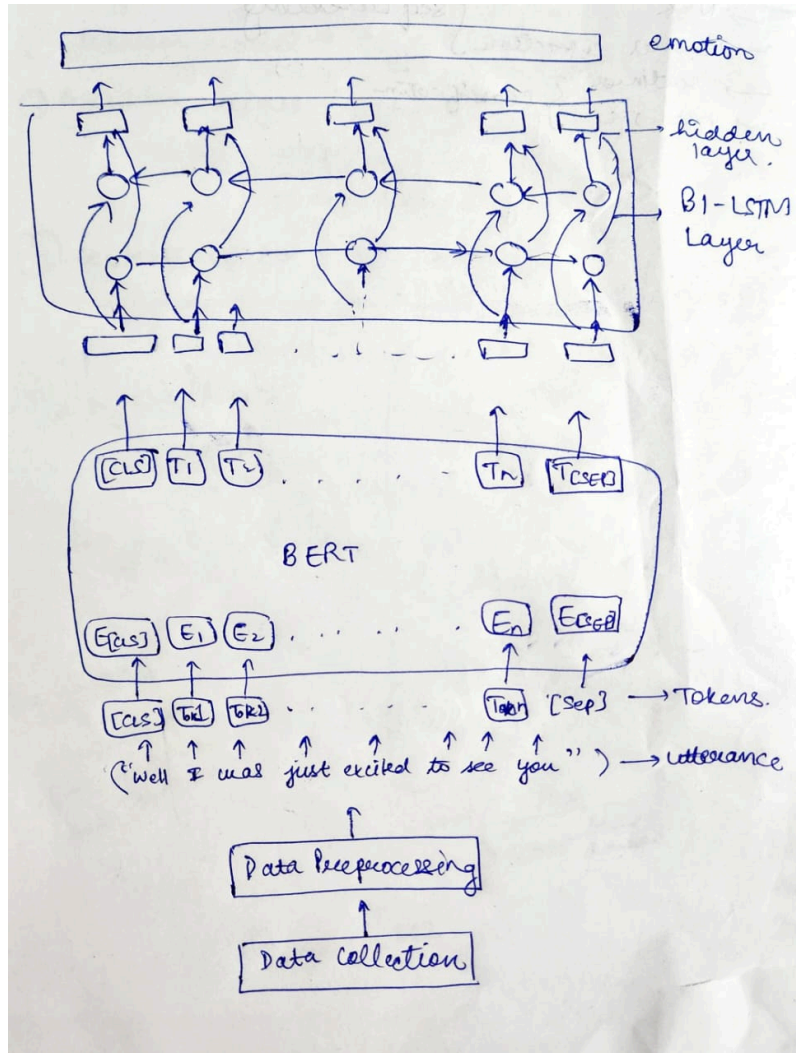 emotion
hidden
layer.
BI-LSTM
Layer
[CLS] T1 T2 . . . . . . Tn T[SEP]
BERT
E[CLS] E1 E2 . . . . . . En E[SEP]
[CLS] Tok1 Tok2 . . . . . . [Sep] → Tokens.
("Well I was just excited to see you") → utterance
Data Preprocessing
Data Collection